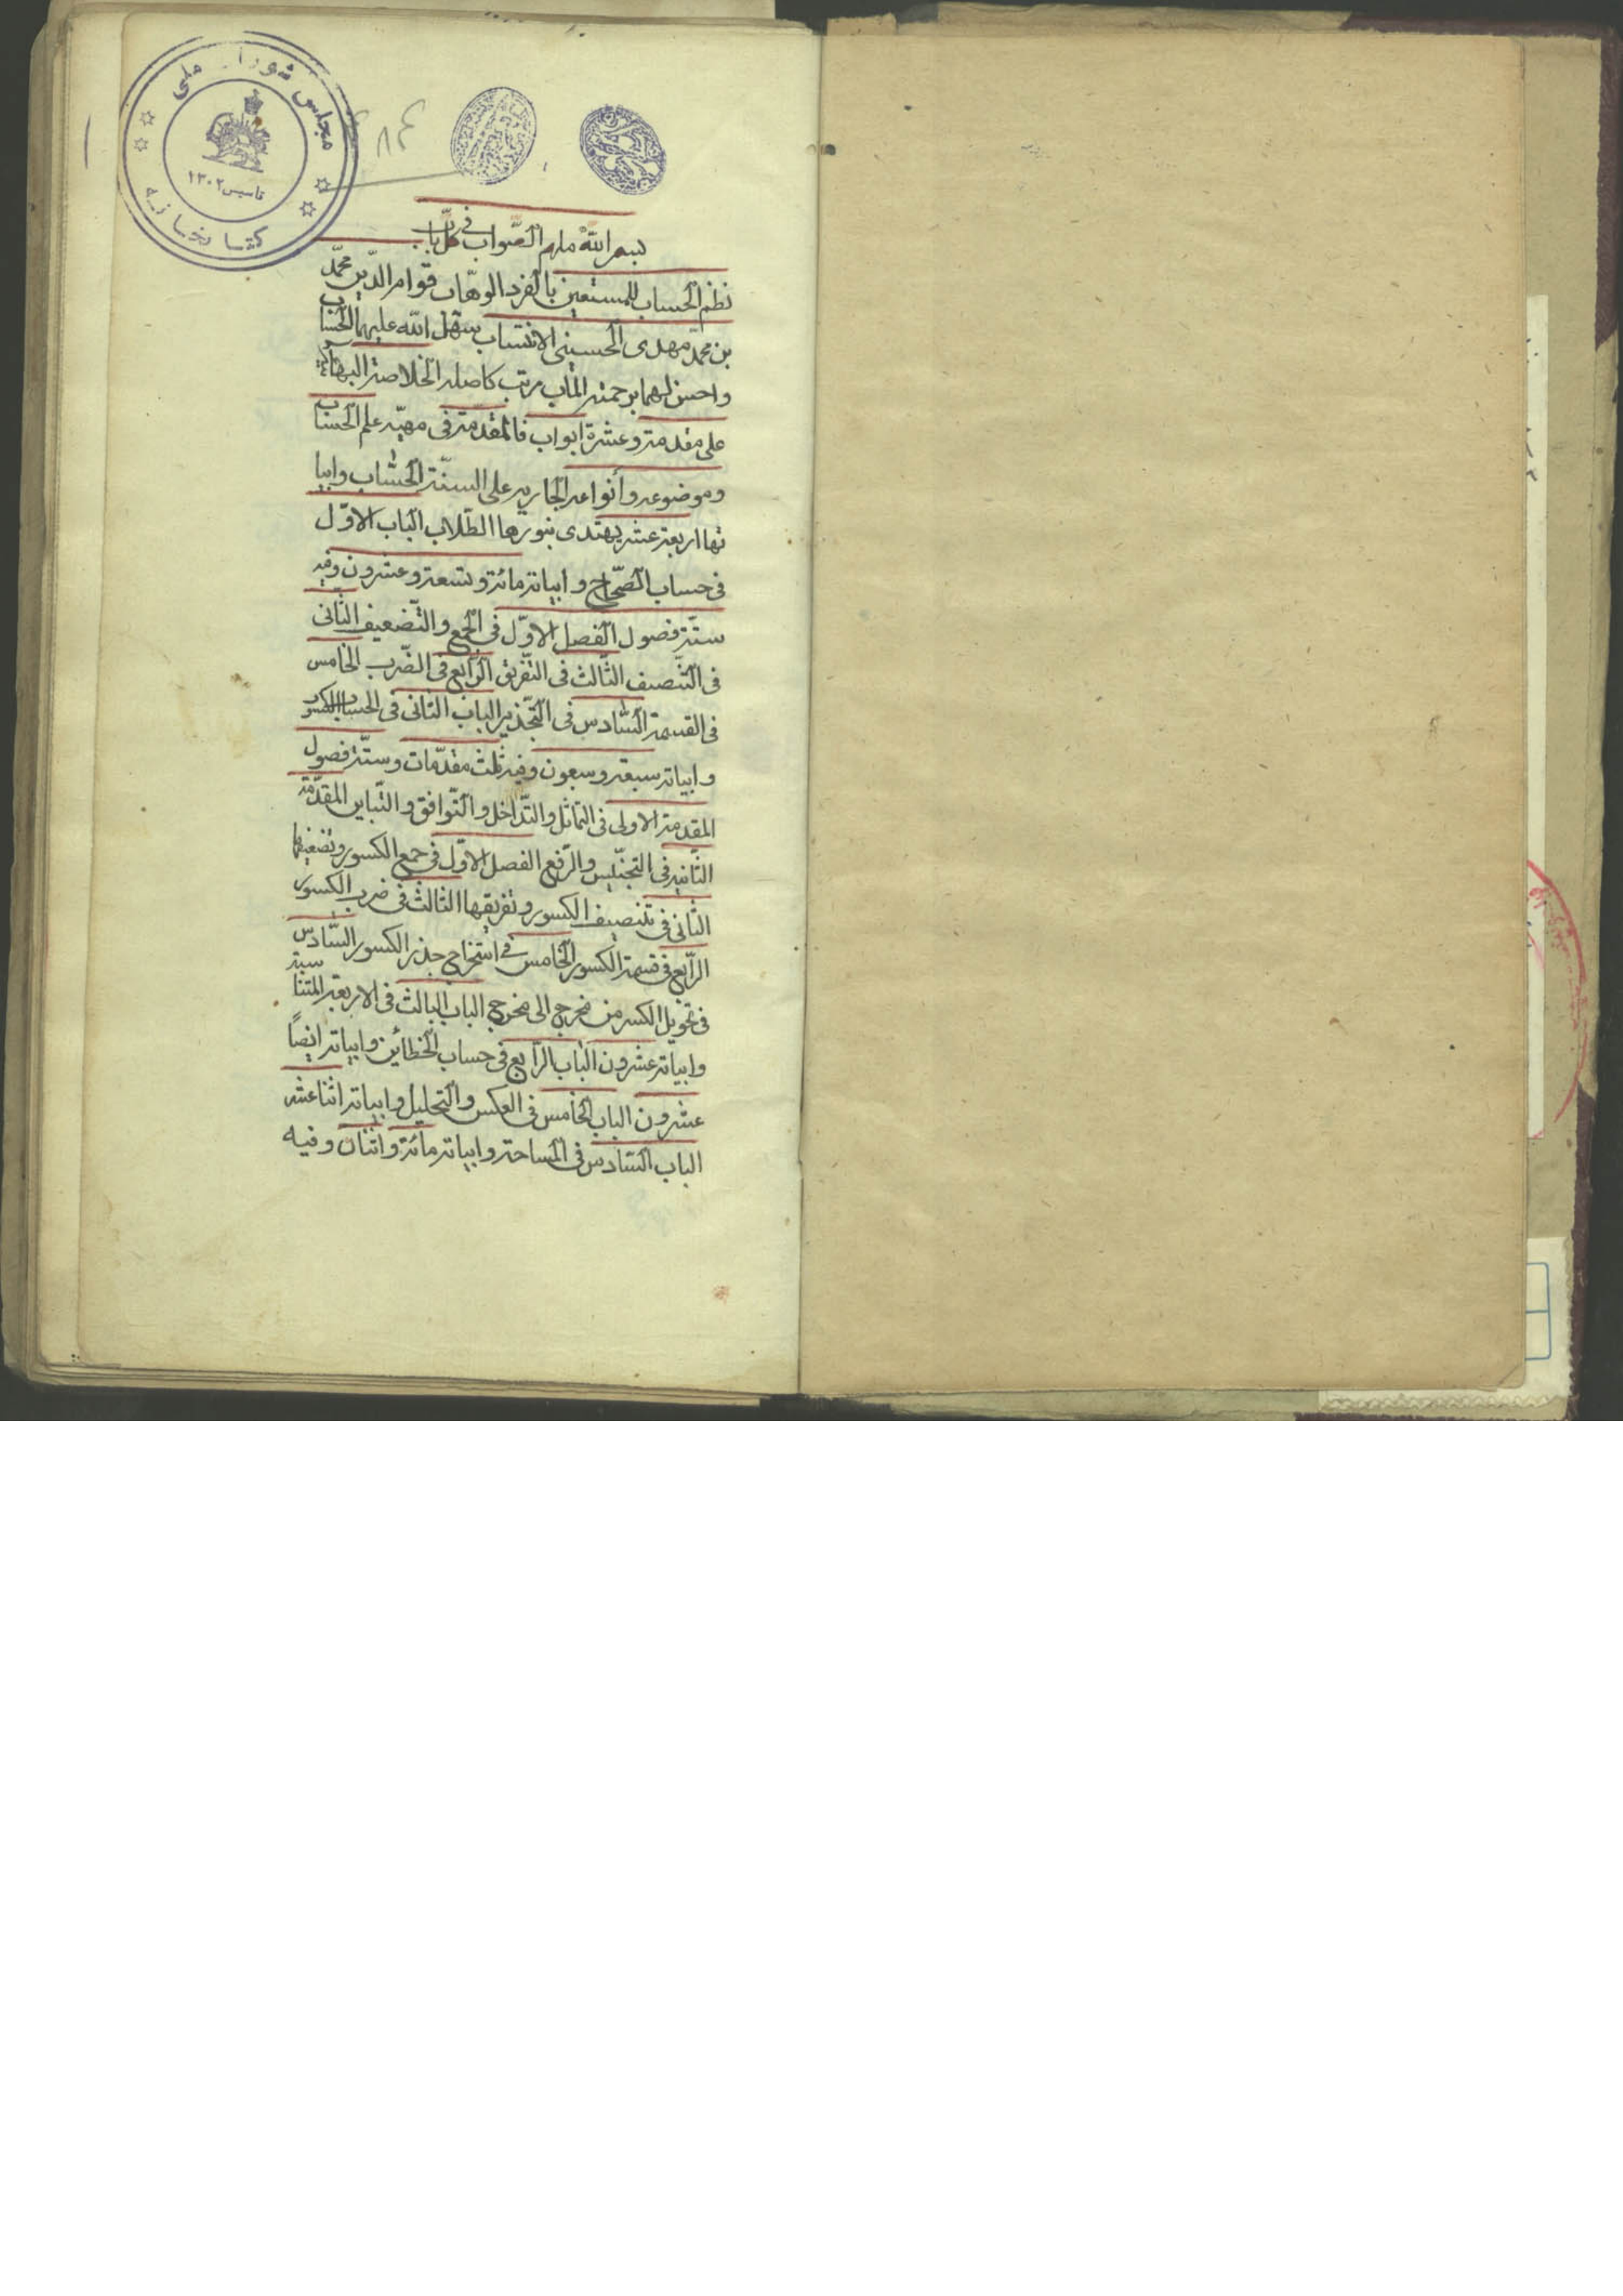 مجلس شورای ملی
تاسیس ۱۳۰۲
کتابخانه
بسم الله ملهم الصّواب فی کلّ باب
نظم الحساب للمستعین بالفرد الوهّاب قوام الدّین محمّد
بن محمّد مهدی الحسینی الانتساب سهّل الله علیهما الحساب
واحسن لهما برحمته المآب مرتب کاصله الخلاصة البهائیه
علی مقدمة وعشرة ابواب فالمقدّمة فی مهیّه علم الحساب
وموضوعه وأنواعه الجاریه علی السنّة الحُسّاب وابیا
تها اربعة عشر یهتدی بنورها الطّلاب الباب الاوّل
فی حساب الصّحاح وابیاته مائة وتسعة وعشرون وفیه
ستّة فصول الفصل الاوّل فی الجمع والتّضعیف الثّانی
فی التّنصیف الثّالث فی التّفریق الرّابع فی الضّرب الخامس
فی القسمة السّادس فی التّجذیر الباب الثّانی فی الحساب الکسور
وابیاته سبعة وسبعون وفیه ثلث مقدّمات وستّة فصول
المقدمة الاولی فی التماثل والتّداخل والتّوافق والتّباین المقدّمة
الثّانیه فی التجنّیس والرّفع الفصل الاوّل فی جمع الکسور وتضعیفها
الثّانی فی تنصیف الکسور وتفریقها الثالث فی ضرب الکسور
الرّابع فی قسمة الکسور الخامس فی استخراج جذر الکسور السّادس
فی تحویل الکسر من مخرج الی مخرج الباب الثالث فی الاربعة المتناسبة
وابیاته عشرون الباب الرّابع فی حساب الخطائین وابیاته ایضاً
عشرون الباب الخامس فی العکس والتحلیل وابیاته اثنا عشر
الباب السّادس فی المساحة وابیاته مائة واثنان وفیه